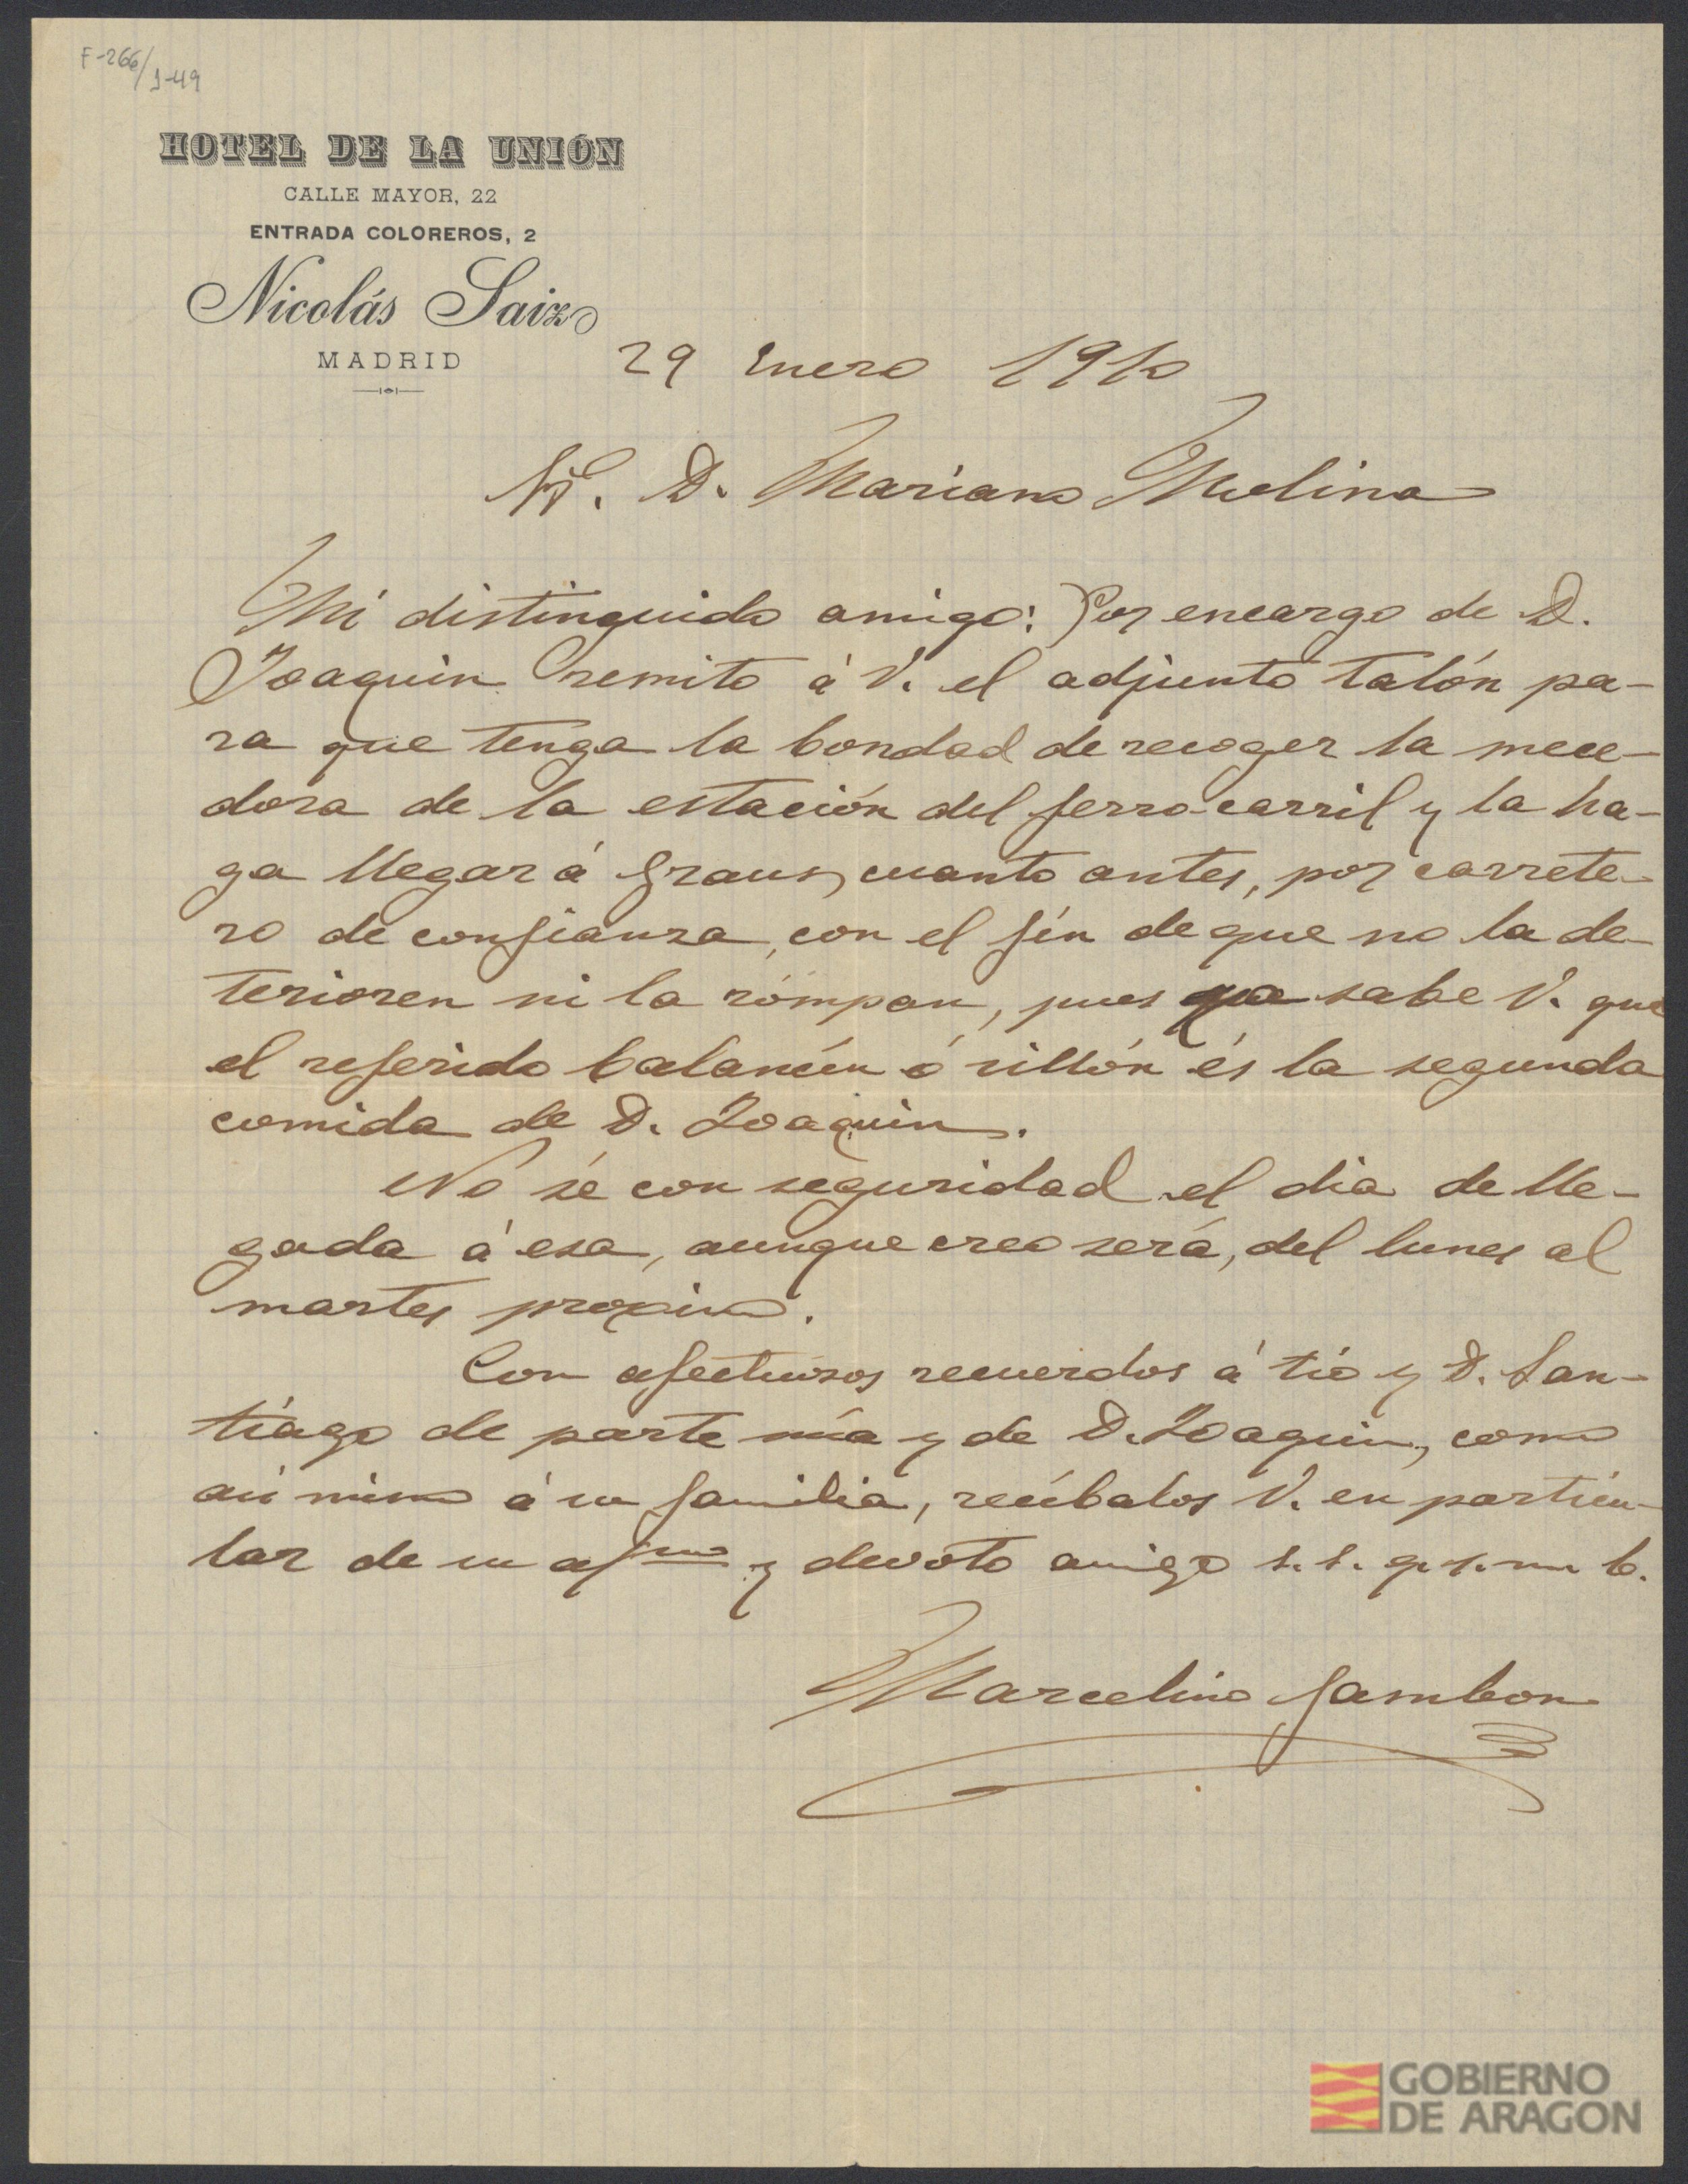 F-266/1-49
HOTEL DE LA UNIÓN
CALLE MAYOR, 22
ENTRADA COLOREROS, 2
Nicolás Saiz
MADRID
29 Enero 1910
D. Mariano Molina
Mi distinguido amigo: Por encargo de D.
Joaquin remito á V. el adjunto talón pa-
ra que tenga la bondad de recoger la mece-
dora de la estación del ferro-carril y la ha-
ga llegar á Graus, cuanto antes, por carrete-
ro de confianza, con el fín de que no la de-
terioren ni la rómpan, pues ya sabe V. que
el referido balancín ó sillón és la segunda
comida de D. Joaquin.
No sé con seguridad el dia de lle-
gada á esa, aunque creo será, del lunes al
martes proximo.
Con afectuosos recuerdos á tío y D. San-
tiago de parte mía y de D. Joaquin, como
así mismo á su familia, recíbalos V. en particu-
lar de su afmo y devoto amigo s. s. q. s. m b.
Marcelino Gambon
GOBIERNO
DE ARAGON